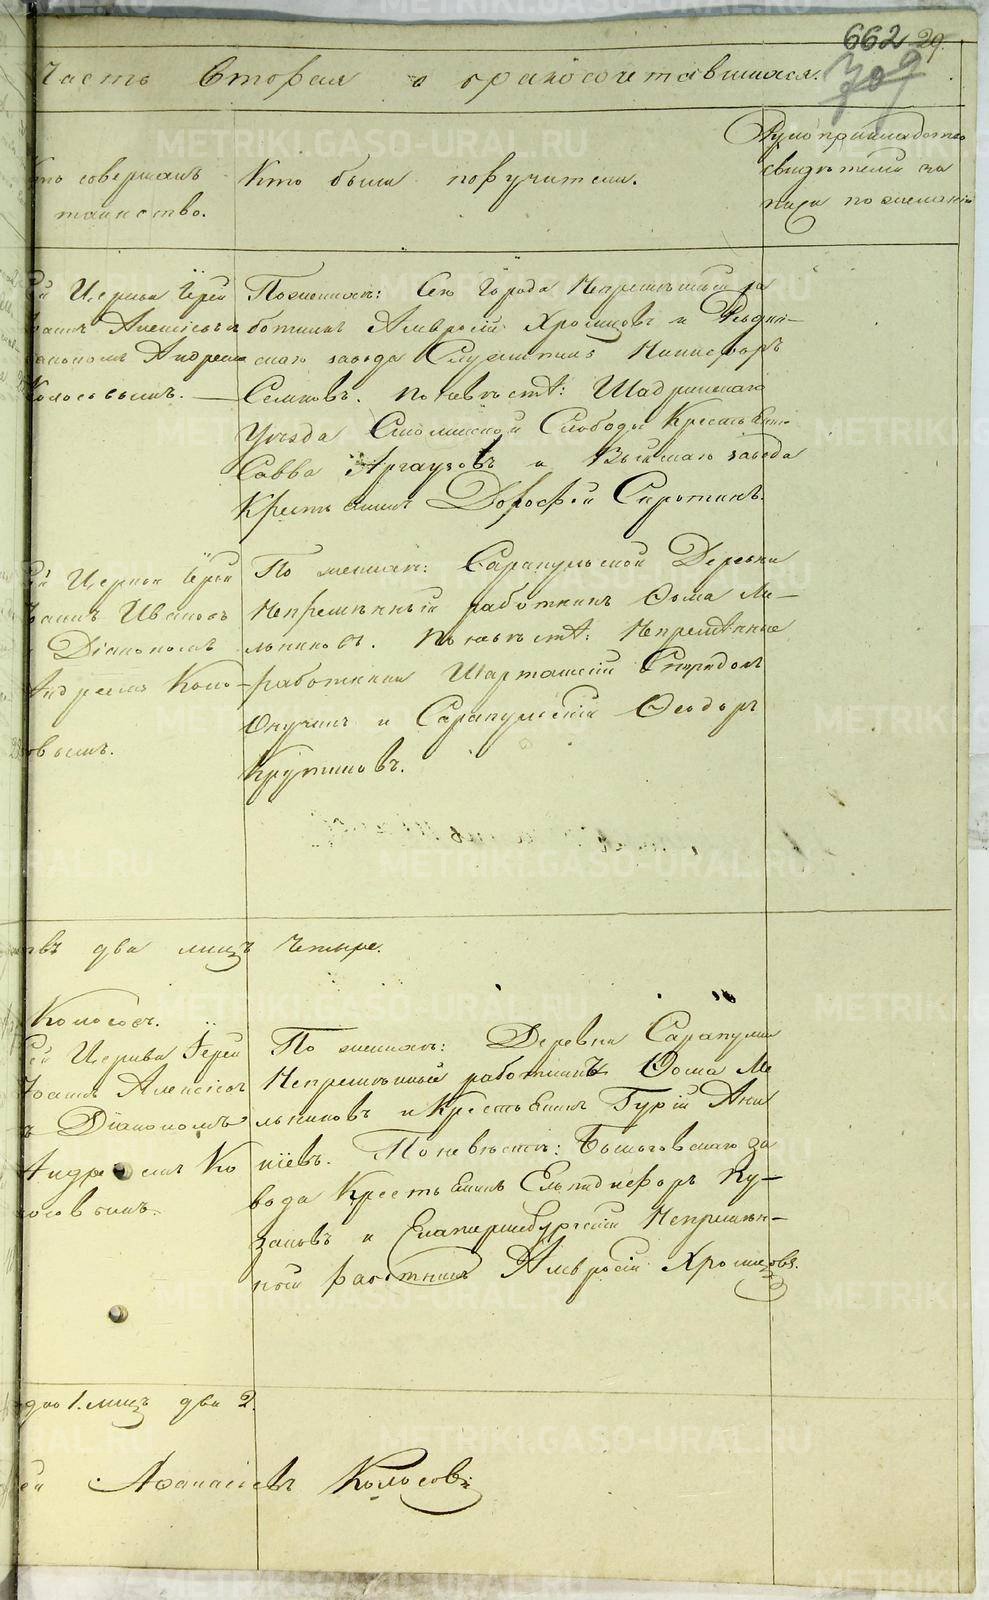 662 29.
709
Часть Вторая о бракосочетавшихся.
Кто совершалъ
таинство.
Кто были поручители.
Рукоприкладство
свидѣтелей за
писи по желанію
Церкви Іерей
Іоаннъ Алексѣевъ
Діакономъ Андреемъ
Колосовымъ.
По женихѣ: Сего Города Непремѣнный ра
ботникъ Амвросій Хромцовъ и
скаго завода Служитель Никифоръ
Семковъ. По невѣстѣ: Шадринскаго
Уѣзда Смолинской Слободы Крестьянинъ
Савва и завода
Крестьянинъ Дорофей Сиротинъ.
Церкви Іерей
Іоаннъ Ивановъ
Діакономъ
Андреемъ Коло-
совымъ.
По женихѣ: Сарапульской Деревни
Непремѣнный работникъ Ѳома Ме-
льниковъ. По невѣстѣ: Непремѣнные
работники Шарташскій Спиридонъ
Окучинъ и Сарапульскій Ѳеодоръ
Крутиковъ.
два лицъ четыре.
Колосовъ.
Церкви Іерей
Іоаннъ Алексѣевъ
Діакономъ
Андреемъ Ко
лосовымъ.
По женихѣ: Деревни Сарапулки
Непремѣнный работникъ Ѳома Ме
льниковъ и Крестьянинъ Гурій Ана
ніевъ. По невѣстѣ: Быньговскаго за
вода Крестьянинъ Елпидифоръ Ку-
зановъ и Екатеринбургскій Непремѣн-
ной работникъ Амвросій Хромцовъ.
одно 1. лицъ два 2.
Аѳанасіевъ Колосовъ
METRIKI.GASO-URAL.RU